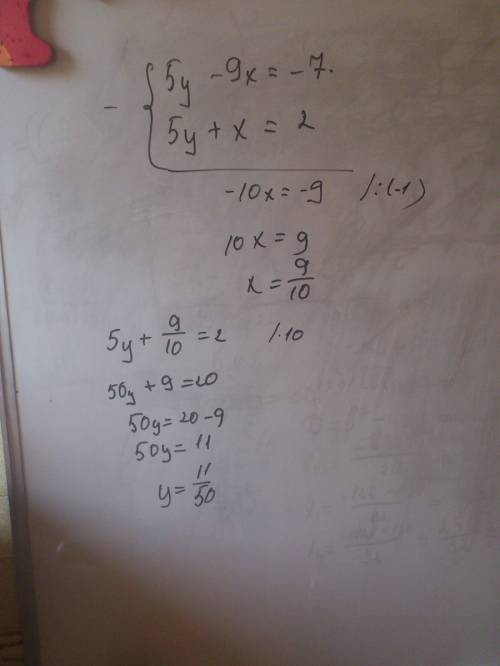 - { 5y - 9x = -7.
5y + x = 2
-10x = -9 /:(-1)
10x = 9
x = 9/10
5y + 9/10 = 2 /·10
50y + 9 = 20
50y = 20 - 9
50y = 11
y = 11/50